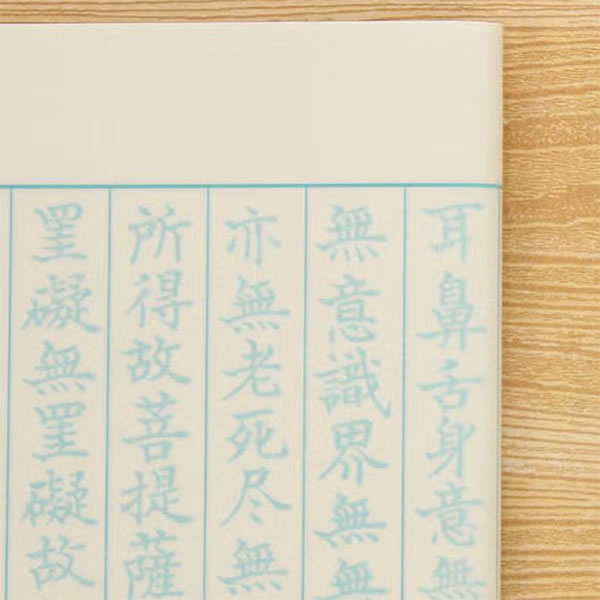 耳鼻舌身意無
無意識界無無
亦無老死尽無
所得故菩提薩
罣礙無罣礙故